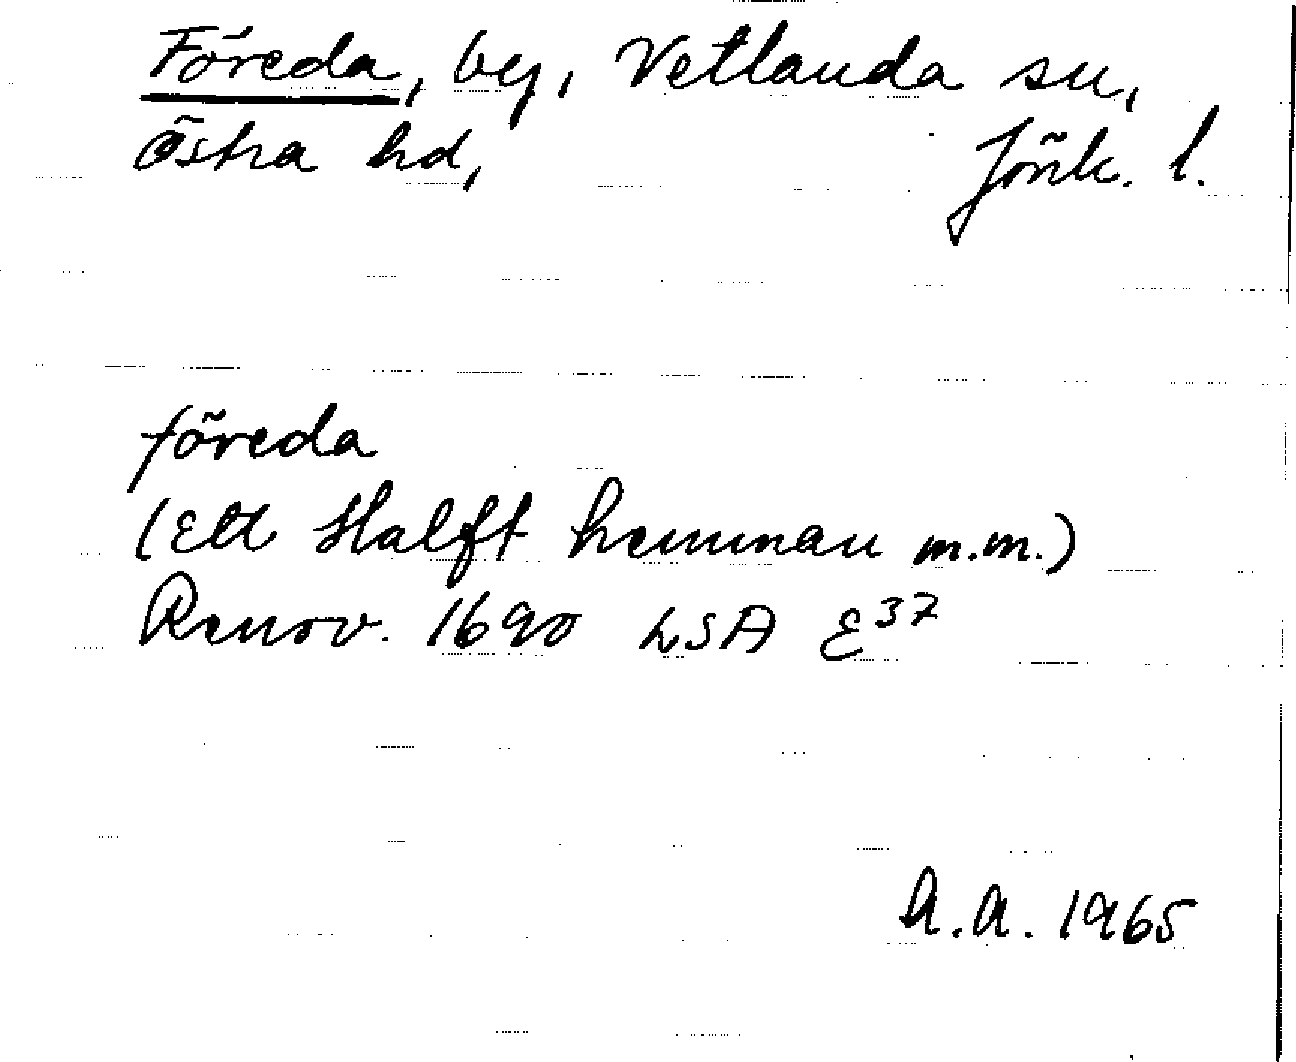 Föreda, by, Vetlanda sn,
Östra hd, Jönk. l.
föreda
(Ett Halft hemman m.m.)
Renov. 1690 LSA E37
A.A. 1965